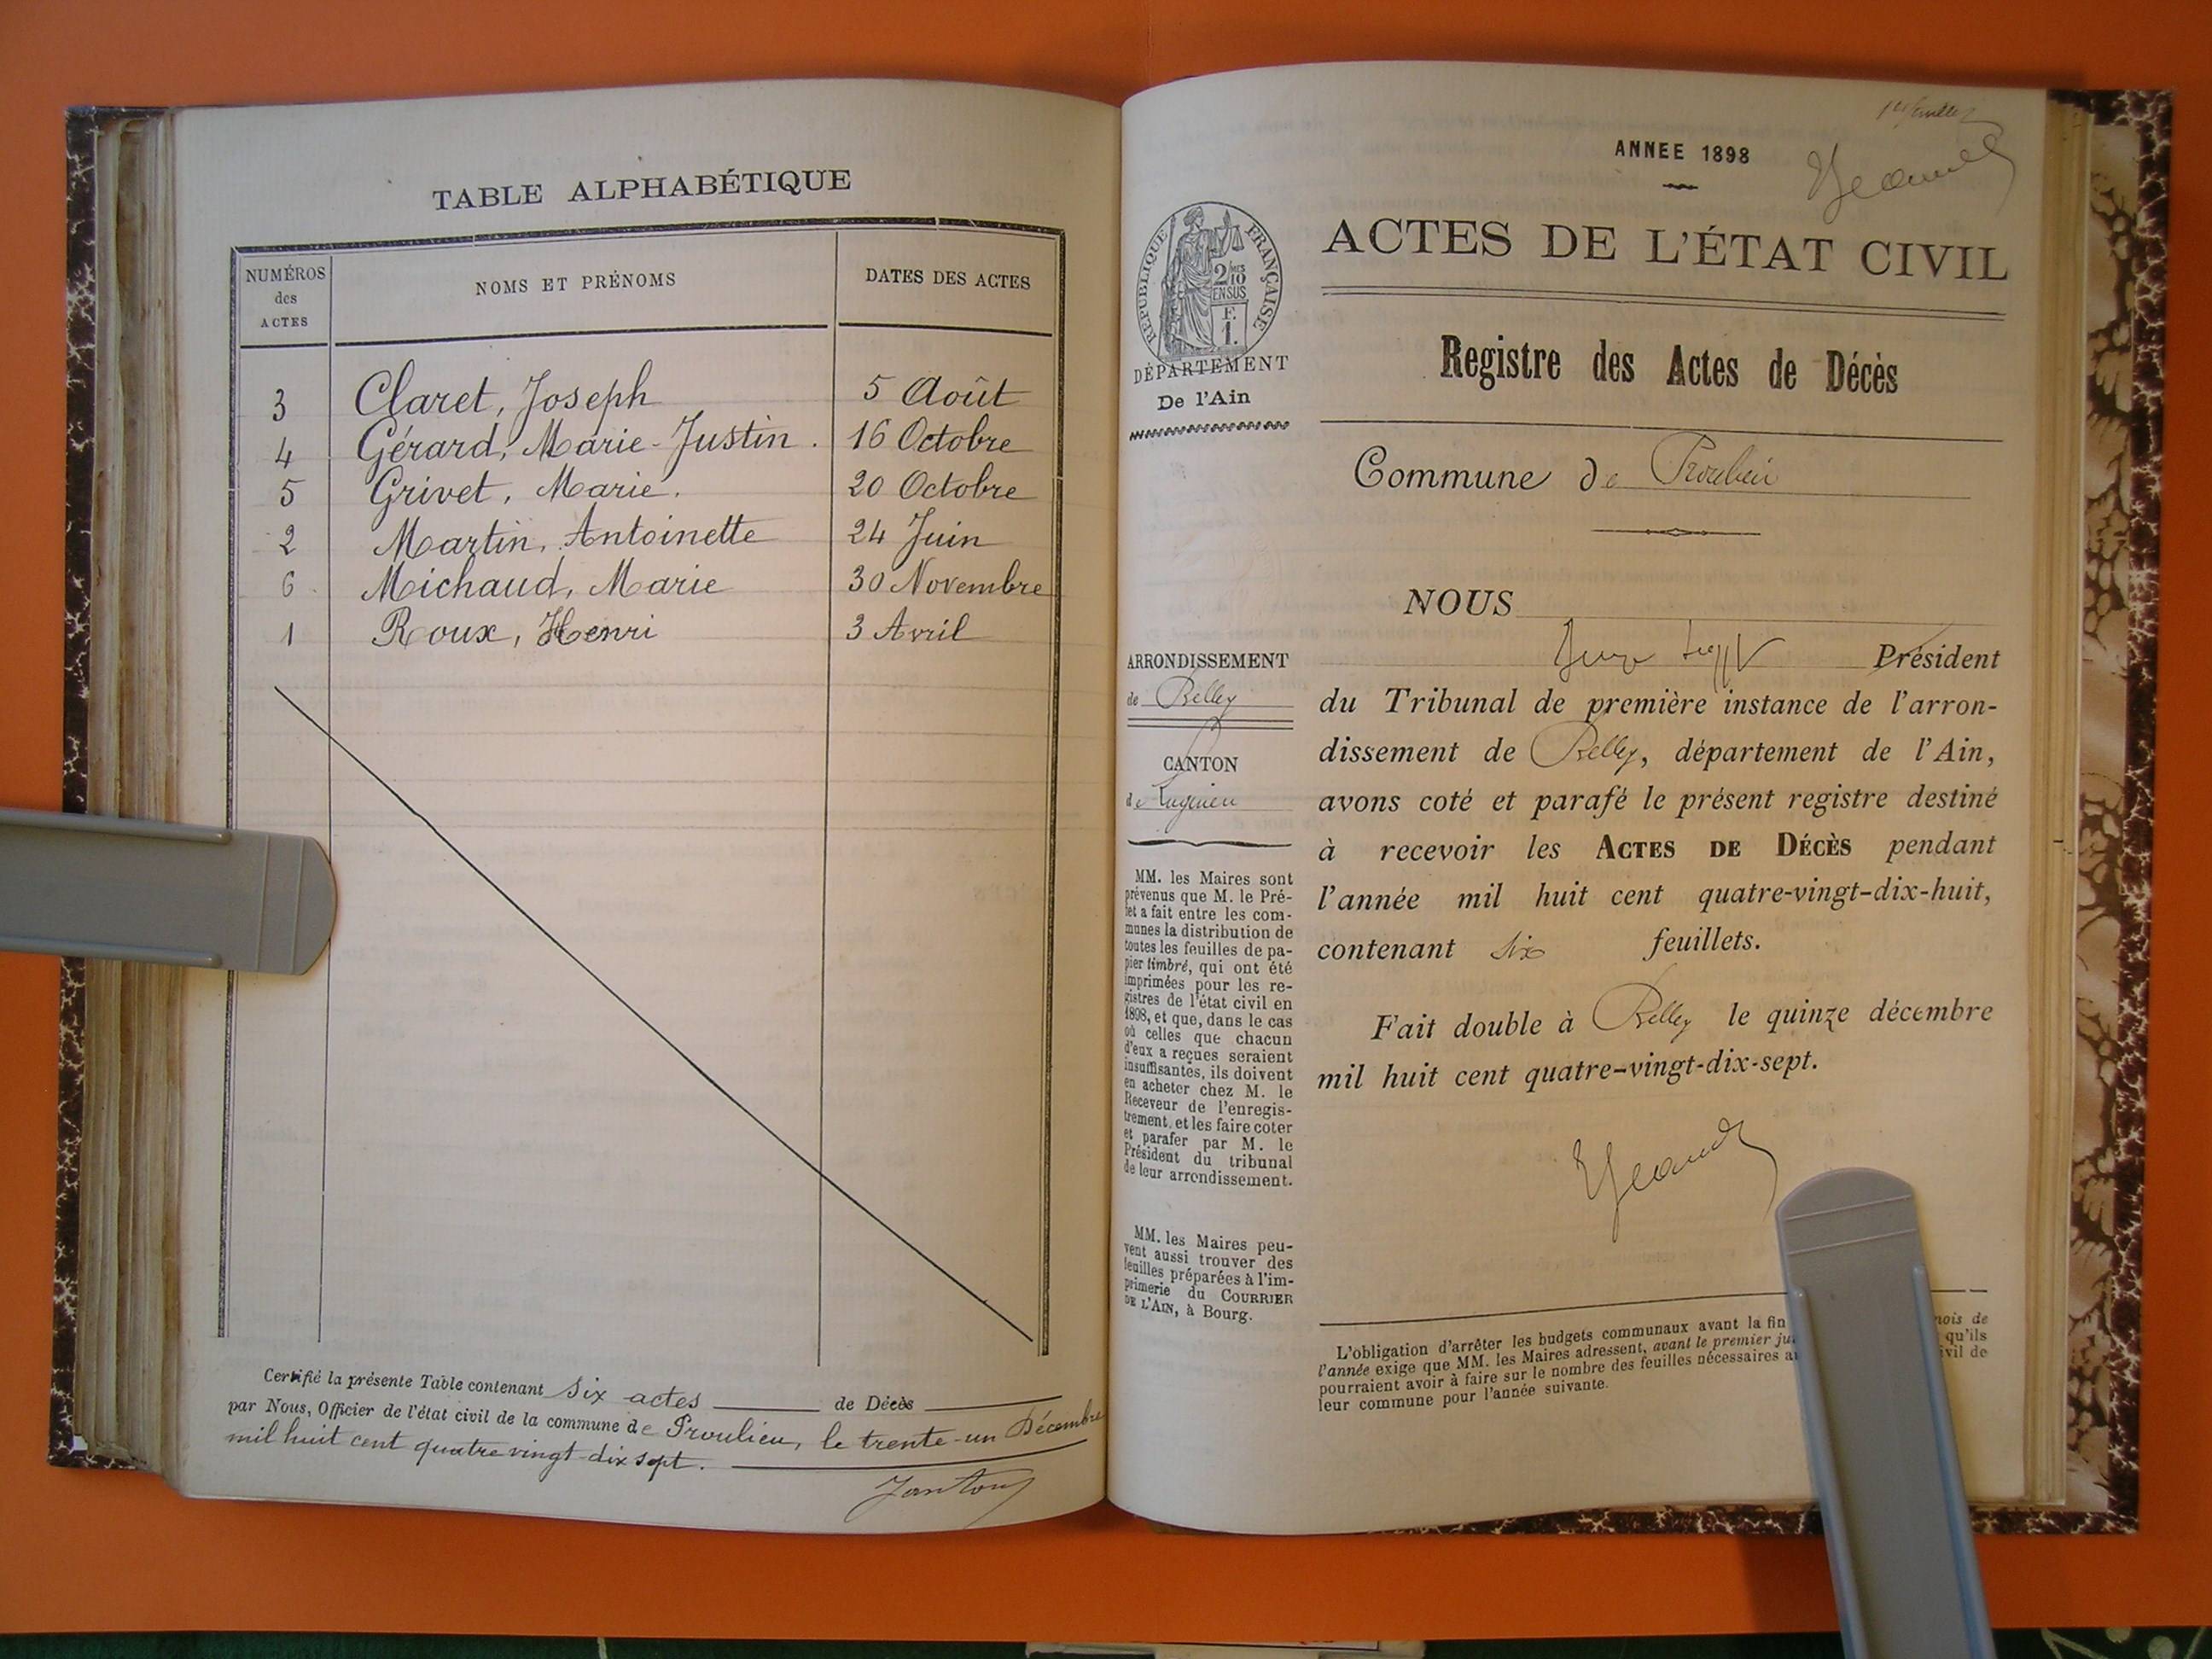 TABLE ALPHABÉTIQUE
NUMÉROS des ACTES NOMS ET PRÉNOMS DATES DES ACTES
3 Claret, Joseph 5 Août
4 Gérard, Marie-Justin. 16 Octobre
5 Grivet, Marie. 20 Octobre
2 Martin, Antoinette 24 Juin
6 Michaud, Marie 30 Novembre
1 Roux, Henri 3 Avril
Certifié la présente Table contenant six actes de Décès
par Nous, Officier de l'état civil de la commune de Proulieu, le trente-un Décembre
mil huit cent quatre vingt-dix sept.
1er feuillet
ANNEE 1898
RÉPUBLIQUE FRANÇAISE
2/10mes
EN SUS
F.
1.
DÉPARTEMENT
De l'Ain
ACTES DE L'ÉTAT CIVIL
Registre des Actes de Décès
Commune de Proulieu
ARRONDISSEMENT
de Belley
CANTON
de Lagnieu
MM. les Maires sont
prévenus que M. le Pré-
fet a fait entre les com-
munes la distribution de
toutes les feuilles de pa-
pier timbré, qui ont été
imprimées pour les re-
gistres de l'état civil en
1898, et que, dans le cas
où celles que chacun
d'eux a reçues seraient
insuffisantes, ils doivent
en acheter chez M. le
Receveur de l'enregis-
trement, et les faire coter
et parafer par M. le
Président du tribunal
de leur arrondissement.
MM. les Maires peu-
vent aussi trouver des
feuilles préparées à l'im-
primerie du COURRIER
DE L'AIN, à Bourg.
NOUS
Juge suppt Président
du Tribunal de première instance de l'arron-
dissement de Belley, département de l'Ain,
avons coté et parafé le présent registre destiné
à recevoir les ACTES DE DÉCÈS pendant
l'année mil huit cent quatre-vingt-dix-huit,
contenant six feuillets.
Fait double à Belley le quinze décembre
mil huit cent quatre-vingt-dix-sept.
L'obligation d'arrêter les budgets communaux avant la fin mois de
l'année exige que MM. les Maires adressent, avant le premier qu'ils
pourraient avoir à faire sur le nombre des feuilles nécessaires de
leur commune pour l'année suivante.